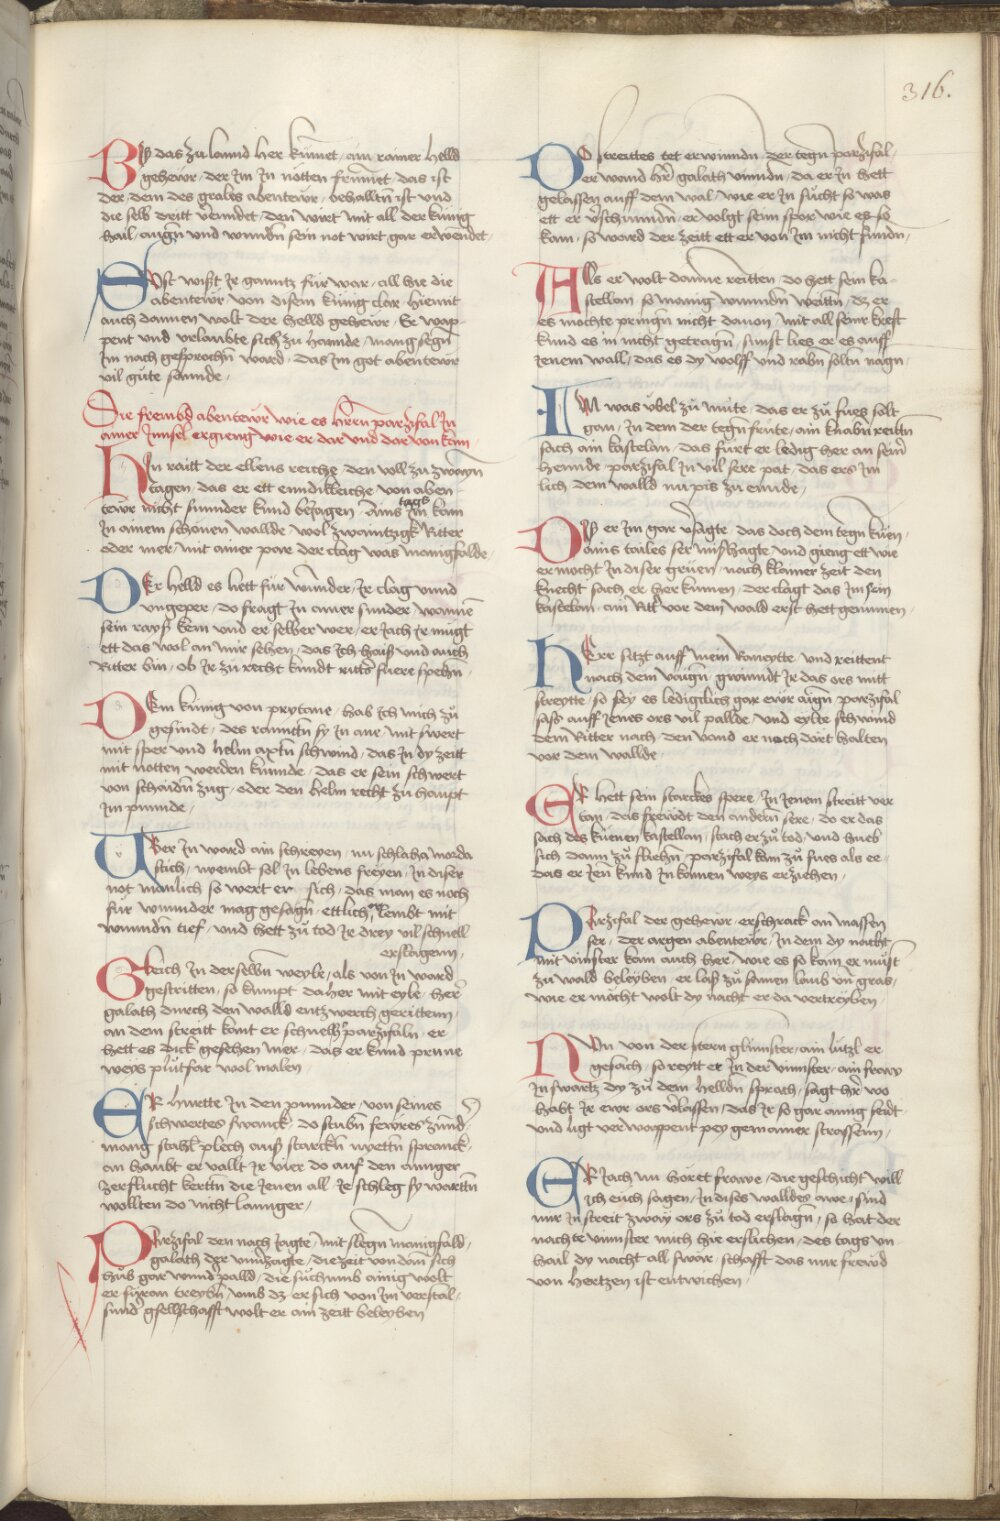 316.
By das zu lannd her kumet, ain rainer helld
gehewr, der Im In nötten frumet, das ist
der, dem des grales abentewr, behallten ist und
die selb dritt verendet, den wirt mit all der künig
hail, augn und wundn sein not wirt gar erwendet,
Sust wisst Ir ganntz fur war, all hie die
abentewr, von disem künig clar, hiemit
auch dannen wolt der helld gehewr, Er wap-
pent und urlaubte sich zu hannde, manig segn
Im nach gesprochn ward, das Im got abentewr
vil gute sannde,
Die frembd abentewr wie es hern parzifal In
ainer Innsel ergieng wie er dar und dar von kam,
Hin raitt der ellens reiche, den voll zu zwayn
tagen, das er ett enndikleiche von aben-
tewr nicht sunnder kund bejagen, Ains tags Im kam
In ainem schonen wallde, wol zwaintzigk Ritter
oder mer, mit ainer pare der clag was manigfallde,
Der helld es hett fur wunder, Ir clag unnd
ungeper, do fragt In ainer sunder wannen
sein rayß kem und er selber wer, er jach Ir mugt
ett das wol an mir sehen, das Ich haiß und auch
Ritter bin, ob Ir zu recht kundt ritters fuere spehen,
Dem künig von prytane, hab Ich mich zu
gesindt, des rannten sy In ane, mit swert
mit sper und helm axtn schwind, das In dy zeitt
mit notten werden kunnde, das er sein schwert
von schaiden zug, oder den helm recht zu haupt
Im punnde,
Uber In ward ain schreyen, nu schlaha morda
stich, wembt sol In lebens freyen, In diser
not manlich so wert er sich, das man es noch
fur wunnder mag gesagn, ettlich er lembt mit
wunndn tief, und hett zu tod Ir drey vil schnell
erslagenn,
Gleich In derselbn weyle, als von In ward
gestritten, so kumpt daher mit eyle, her
galath durch den walld entzwerch gerittenn
an dem streitt kant er schnell parzifaln, er
hett es dick gesehen mer, das er kund prune
weys plutfar wol malen,
Er hurtte In den punnder, von seines
schwertes swanck, do stubn fewres zund,
manig stahl plech auß starckn wettn spranck,
an haubt er vallt Ir vier do auf den annger
zerflucht kertn die Jenen all, Ir schleg sy wartn
wollten do nicht lannger,
Parzifal den nach Jagte, mit slegn manigfald,
galath der unverzagte, die zeit von dan sich
hub gar wund palld, die suchnus ainig wolt
er furan treybn, umb dz er sich von Im verstal,
sunnd gsellschafft wolt er ain zeitt beleyben
Do streittes tet erwinndn, der tegn parzifal,
er wand her galath vinndn, da er In hett
gelassen auff dem wal, wie er In sucht so was
ett er verschwunndn, er volgt seim spor wie es so
kam, so ward der zeitt ett er von Im nicht fundn,
Alls er wolt danne reitten, do hett sein ka-
stellan, so manig wunndn weittn, dz er
es mochte pringn nicht davon, mit all seinr krefft
kund es in nicht getragn, sunst lies er es auff
Jenem wall, das es dy wolff und rabn soltn nagn,
Im was ubel zu mute, das er zu fues solt
gan, In dem der tegn frute, ain knabn reittn
sach ain kastelan, das furt er ledig her an seiner
hennde, parzifal In vil sere pat, das ers Im
lich dem walld nu pis zu ennde,
Dy er Im gar versagte, das doch dem tegn kuen,
ains tailes ser mißhagte, und gieng ett wie
er mocht In diser gruen, nach klainer zeit den
knecht sach er her kumen, der clagt das Im sein
kastelan, ain Ritter vor dem wald erst hett genumen,
Herr sitzt auff mein Runeytte, und reittent
nach dem vaign, gwinndt Ir das ors mitt
streytte, so sey es lediglich gar ewr aign, parzifal
saß auff Jenes ors vil pallde, und eylte schwind
dem Ritter nach, den vand er noch dort halten
vor dem wallde,
Er hett sein starckes spere, In Jenem streitt ver
tan, des frewdt den andern sere, do er das
sach des kuenen kastellan, stach er zu tod und hueb
sich dann zu fliehn, parzifal kam zu fues als ee,
das er Jen kund In kainen weys erziehen,
Parzifal der gehewr, erschrack an massen
ser, der argen abentewr, In dem dy nacht
mit vinster kam auch her, wie es so kam er must
zu wald beleyben, er las zu samen laub und gras,
wie er mocht wolt dy nacht er da vertreyben,
Nun von der stern glunster, ain lutzl er
gesach, so reytt er In der vinnster, ain fraw
In swartz dy zu dem helldn sprach, sagt herr wo
habt Ir ewr ors verlassen, das Ir so gar ainig seidt
und ligt verwappent pey gemainer strassenn,
Er Jach nu horet frawe, die geschicht will
ich euch sagen, In dises walldes awe, sind
mir In streit zway ors zu tod erslagn, so hat der
nachte vinnster mich hie erslichen, des tags un-
hail dy nacht all swar, schafft das mir frewd
von hertzen ist entwichen,